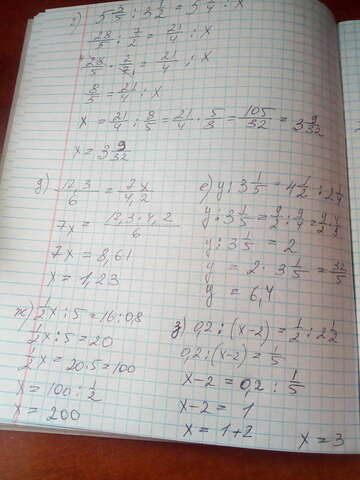 г) 5 3/5 : 3 1/2 = 5 1/4 : x
28/5 : 7/2 = 21/4 : x
28/5 · 2/7 = 21/4 : x
8/5 = 21/4 : x
x = 21/4 : 8/5 = 21/4 · 5/8 = 105/32 = 3 9/32
x = 3 9/32
д) 12,3/6 = 7x/4,2
7x = 12,3·4,2/6
7x = 8,61
x = 1,23
е) y : 3 1/5 = 4 1/2 : 2 1/4
y : 3 1/5 = 9/2 : 9/4 = 9/2 · 4/9
y : 3 1/5 = 2
y = 2 · 3 1/5 = 32/5
y = 6,4
ж) 1/2x : 5 = 16 : 0,8
1/2x : 5 = 20
1/2x = 20·5 = 100
x = 100 : 1/2
x = 200
з) 0,2 : (x-2) = 1/2 : 2 1/2
0,2 : (x-2) = 1/5
x-2 = 0,2 : 1/5
x-2 = 1
x = 1+2
x = 3